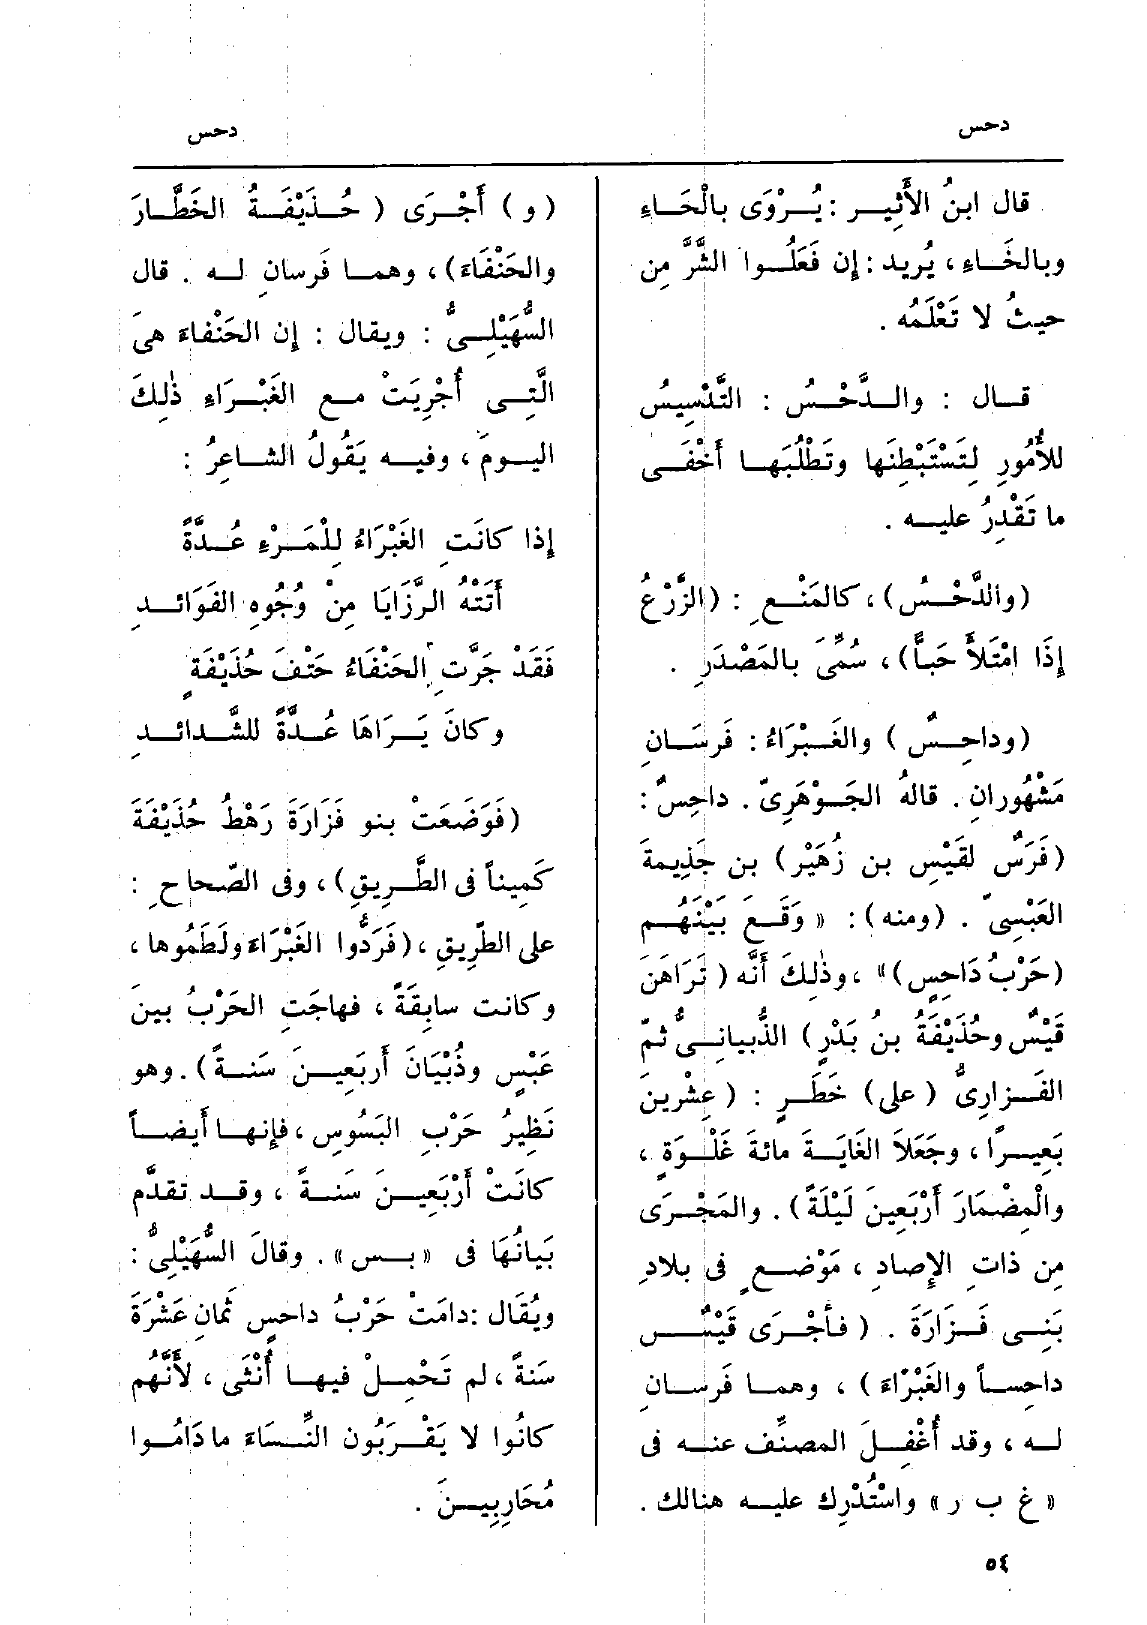 دحس
دحس
قال ابنُ الأَثِيــر : يُــرْوَى بالْحَــاءِ
وبالخَــاءِ ، يُريد : إِن فَعَلُــوا الشَّرَّ مِن
حيثُ لا تَعْلَمُه .
قــال : والــدَّحْـسُ : التَّدْسِيسُ
للأُمُورِ لِتَسْتَبْطِنَها وتَطْلُبَهــا أَخْفَــى
ما تَقْدِرُ عليــه .
(والدَّحْــسُ) ، كالمَنْــعِ : (الزَّرْعُ
إِذَا امْتَلأَ حَبًّا) ، سُمِّىَ بالمَصْدَرِ .
(وداحِــسٌ ) والغَــبْرَاءُ : فَرسَــانِ
مَشْهُورانِ . قالهُ الجَـوْهَرِىّ . داحِسٌ :
(فَرَسٌ لقَيْسِ بن زُهَيْر) بن جَذِيمةَ
العَبْسِىّ . (ومنه) : « وَقَعَ بَيْنَهُـم
(حَرْبُ دَاحِسٍ) » ، وذٰلِكَ أَنَّه ( تَرَاهَنَ
قَيْسٌ وحُذَيْفَةُ بنُ بَدْرٍ ) الذُّبيانِــىُّ ثمّ
الفَــزارِىُّ ( على ) خَطَــرٍ : ( عِشْرِينَ
بَعِيــرًا ، وجَعَلاَ الغَايَــةَ مائةَ غَلْــوَةٍ ،
والْمِضْمَارَ أَرْبَعينَ لَيْلَةً ) . والمَجْــرَى
مِن ذاتِ الإِصادِ ، مَوْضــعٍ فى بلادِ
بَنِــى فَــزارَةَ . ( فــأَجْـرَى قَيْــسٌ
داحِســاً والغَبْرَاءَ ) ، وهمــا فَرسَــانِ
لــه ، وقد أَغْفــلَ المصنِّف عنــه فى
« غ ب ر » واسْتُدْرِك عليــه هنالك .
( و ) أَجْــرَى ( حُــذَيْفَــةُ الخَطَّــارَ
والحَنْفَاءَ ) ، وهمــا فَرسانِ لــه . قال
السُّهَيْلِــىُّ : ويقال : إِن الحَنْفاءَ هىَ
الَّتِــى أُجْرِيَتْ مــع الغَبْــرَاءِ ذٰلِكَ
اليــومَ ، وفيــه يَقُولُ الشــاعِرُ :
إِذا كانَتِ الغَبْرَاءُ لِلْمَــرْءِ عُــدَّةً
أَتَتْهُ الرَّزَايَا مِنْ وُجُوهِ الفَوَائــدِ
فَقَدْ جَرَّت الحَنْفَاءُ حَتْفَ حُذَيْفَةٍ
وكانَ يَــرَاهَا عُــدَّةً للشَّدائــدِ
(فَوَضَعَتْ بنو فَزَارَةَ رَهْطُ حُذَيْفَةَ
كَمِيناً فى الطَّــرِيقِ ) ، وفى الصّحاحِ :
على الطَّرِيقِ ، (فَرَدُّوا الغَبْرَاءَ ولَطَمُوها ،
وكانت سابِقَةً ، فهاجَتِ الحَرْبُ بينَ
عَبْسٍ وذُبْيَانَ أَربَعِيــنَ سَنــةً ) . وهو
نَظِيرُ حَرْبِ البَسُوسِ ، فإِنهــا أَيضــاً
كانَتْ أَرْبَعِيــنَ سَنــةً ، وقــد تقدَّم
بَيانُهَا فى « بــس » . وقالَ السُّهَيْلِىُّ :
ويُقَال : دامَتْ حَرْبُ داحِسٍ ثَمانِ عَشْرَةَ
سَنةً ، لم تَحْمِــلْ فيهــا أُنْثَى ، لأَنَّهُم
كانُوا لا يَقْرَبُون النِّســاءَ ما دَامُــوا
مُحَارِبِيــنَ .
٥٤